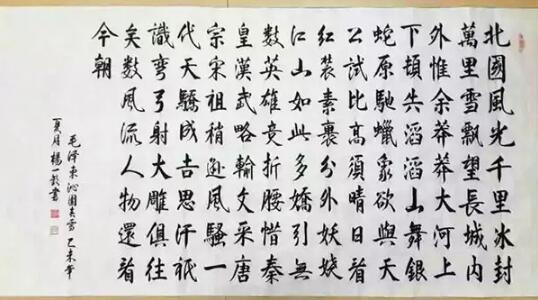 北國風光千里冰封
萬里雪飄望長城内
外惟余莽莽大河上
下頓失滔滔山舞銀
蛇原馳蠟象欲與天
公試比高須晴日看
紅裝素裹分外妖嬈
江山如此多嬌引無
數英雄竞折腰惜秦
皇漢武略輸文采唐
宗宋祖稍遜風騷一
代天驕成吉思汗祇
識彎弓射大雕俱往
矣數風流人物還看
今朝
毛泽東沁園春雪乙未年
夏月楊一書